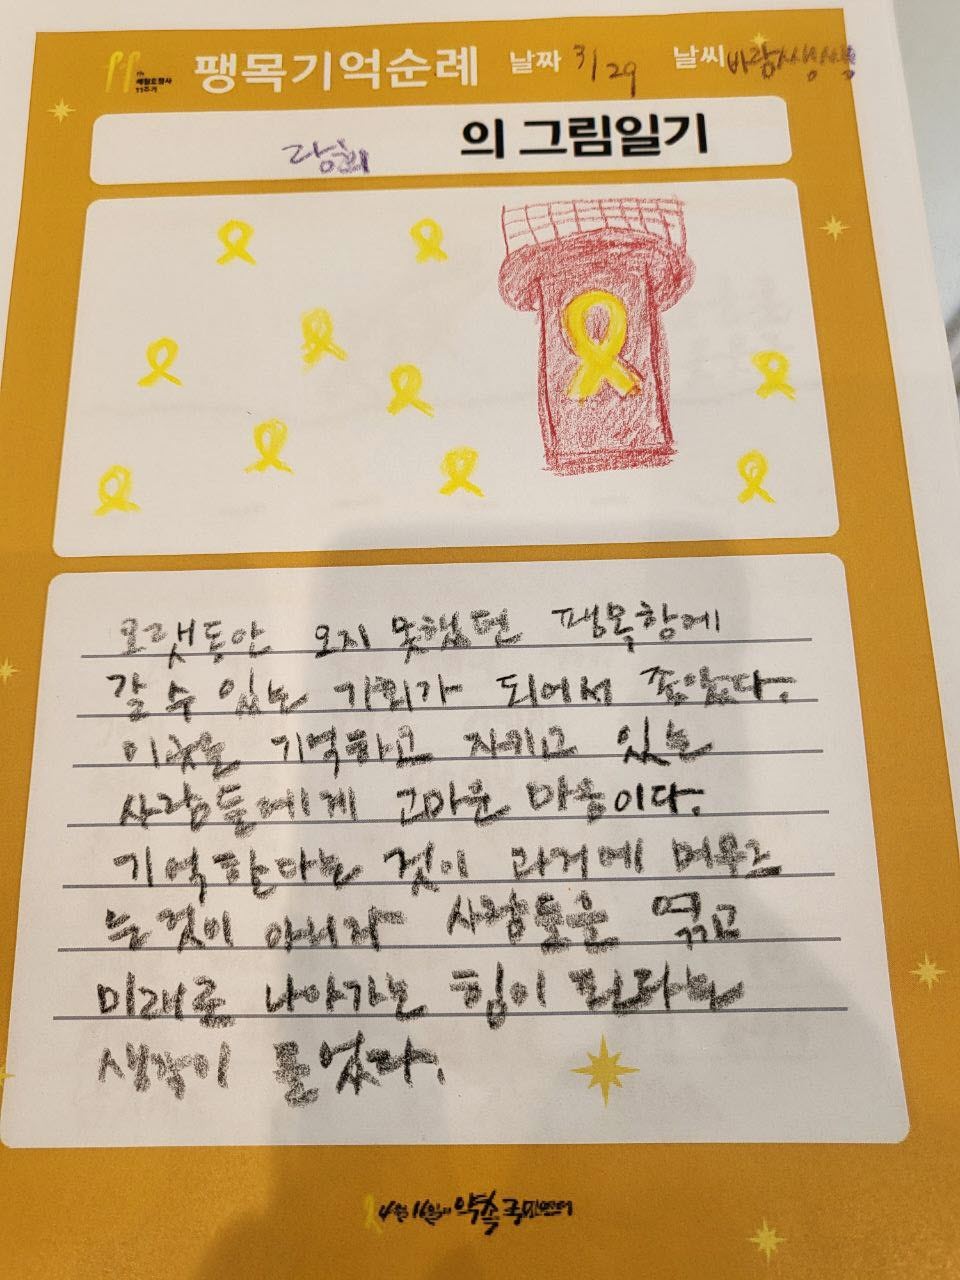 세월호참사
11주기
팽목기억순례 날짜 3/29 날씨 바람쌩쌩
랑희 의 그림일기
오랫동안 오지 못했던 팽목항에
갈 수 있는 기회가 되어서 좋았다.
이곳을 기억하고 지키고 있는
사람들에게 고마운 마음이다.
기억한다는 것이 과거에 머무르
는 것이 아니라 사람들을 엮고
미래로 나아가는 힘이 된다는
생각이 들었다.
4월16일의 약속 국민연대